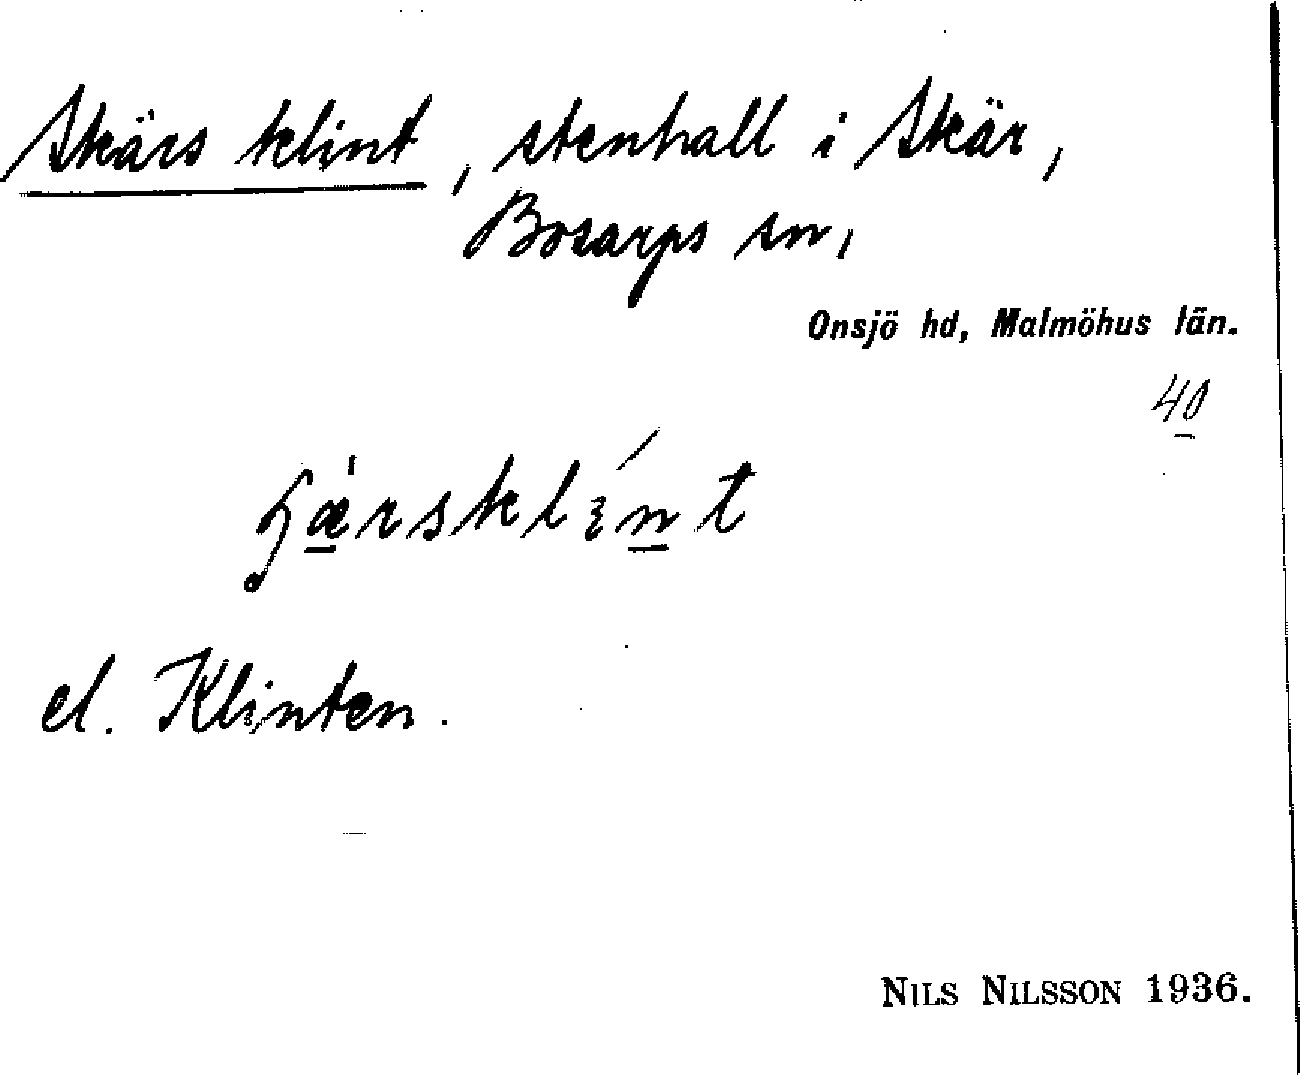 Skärs klint, stenhall i Skär,
Bosarps sn,
Onsjö hd, Malmöhus län.
40
el. Klinten.
NILS NILSSON 1936.